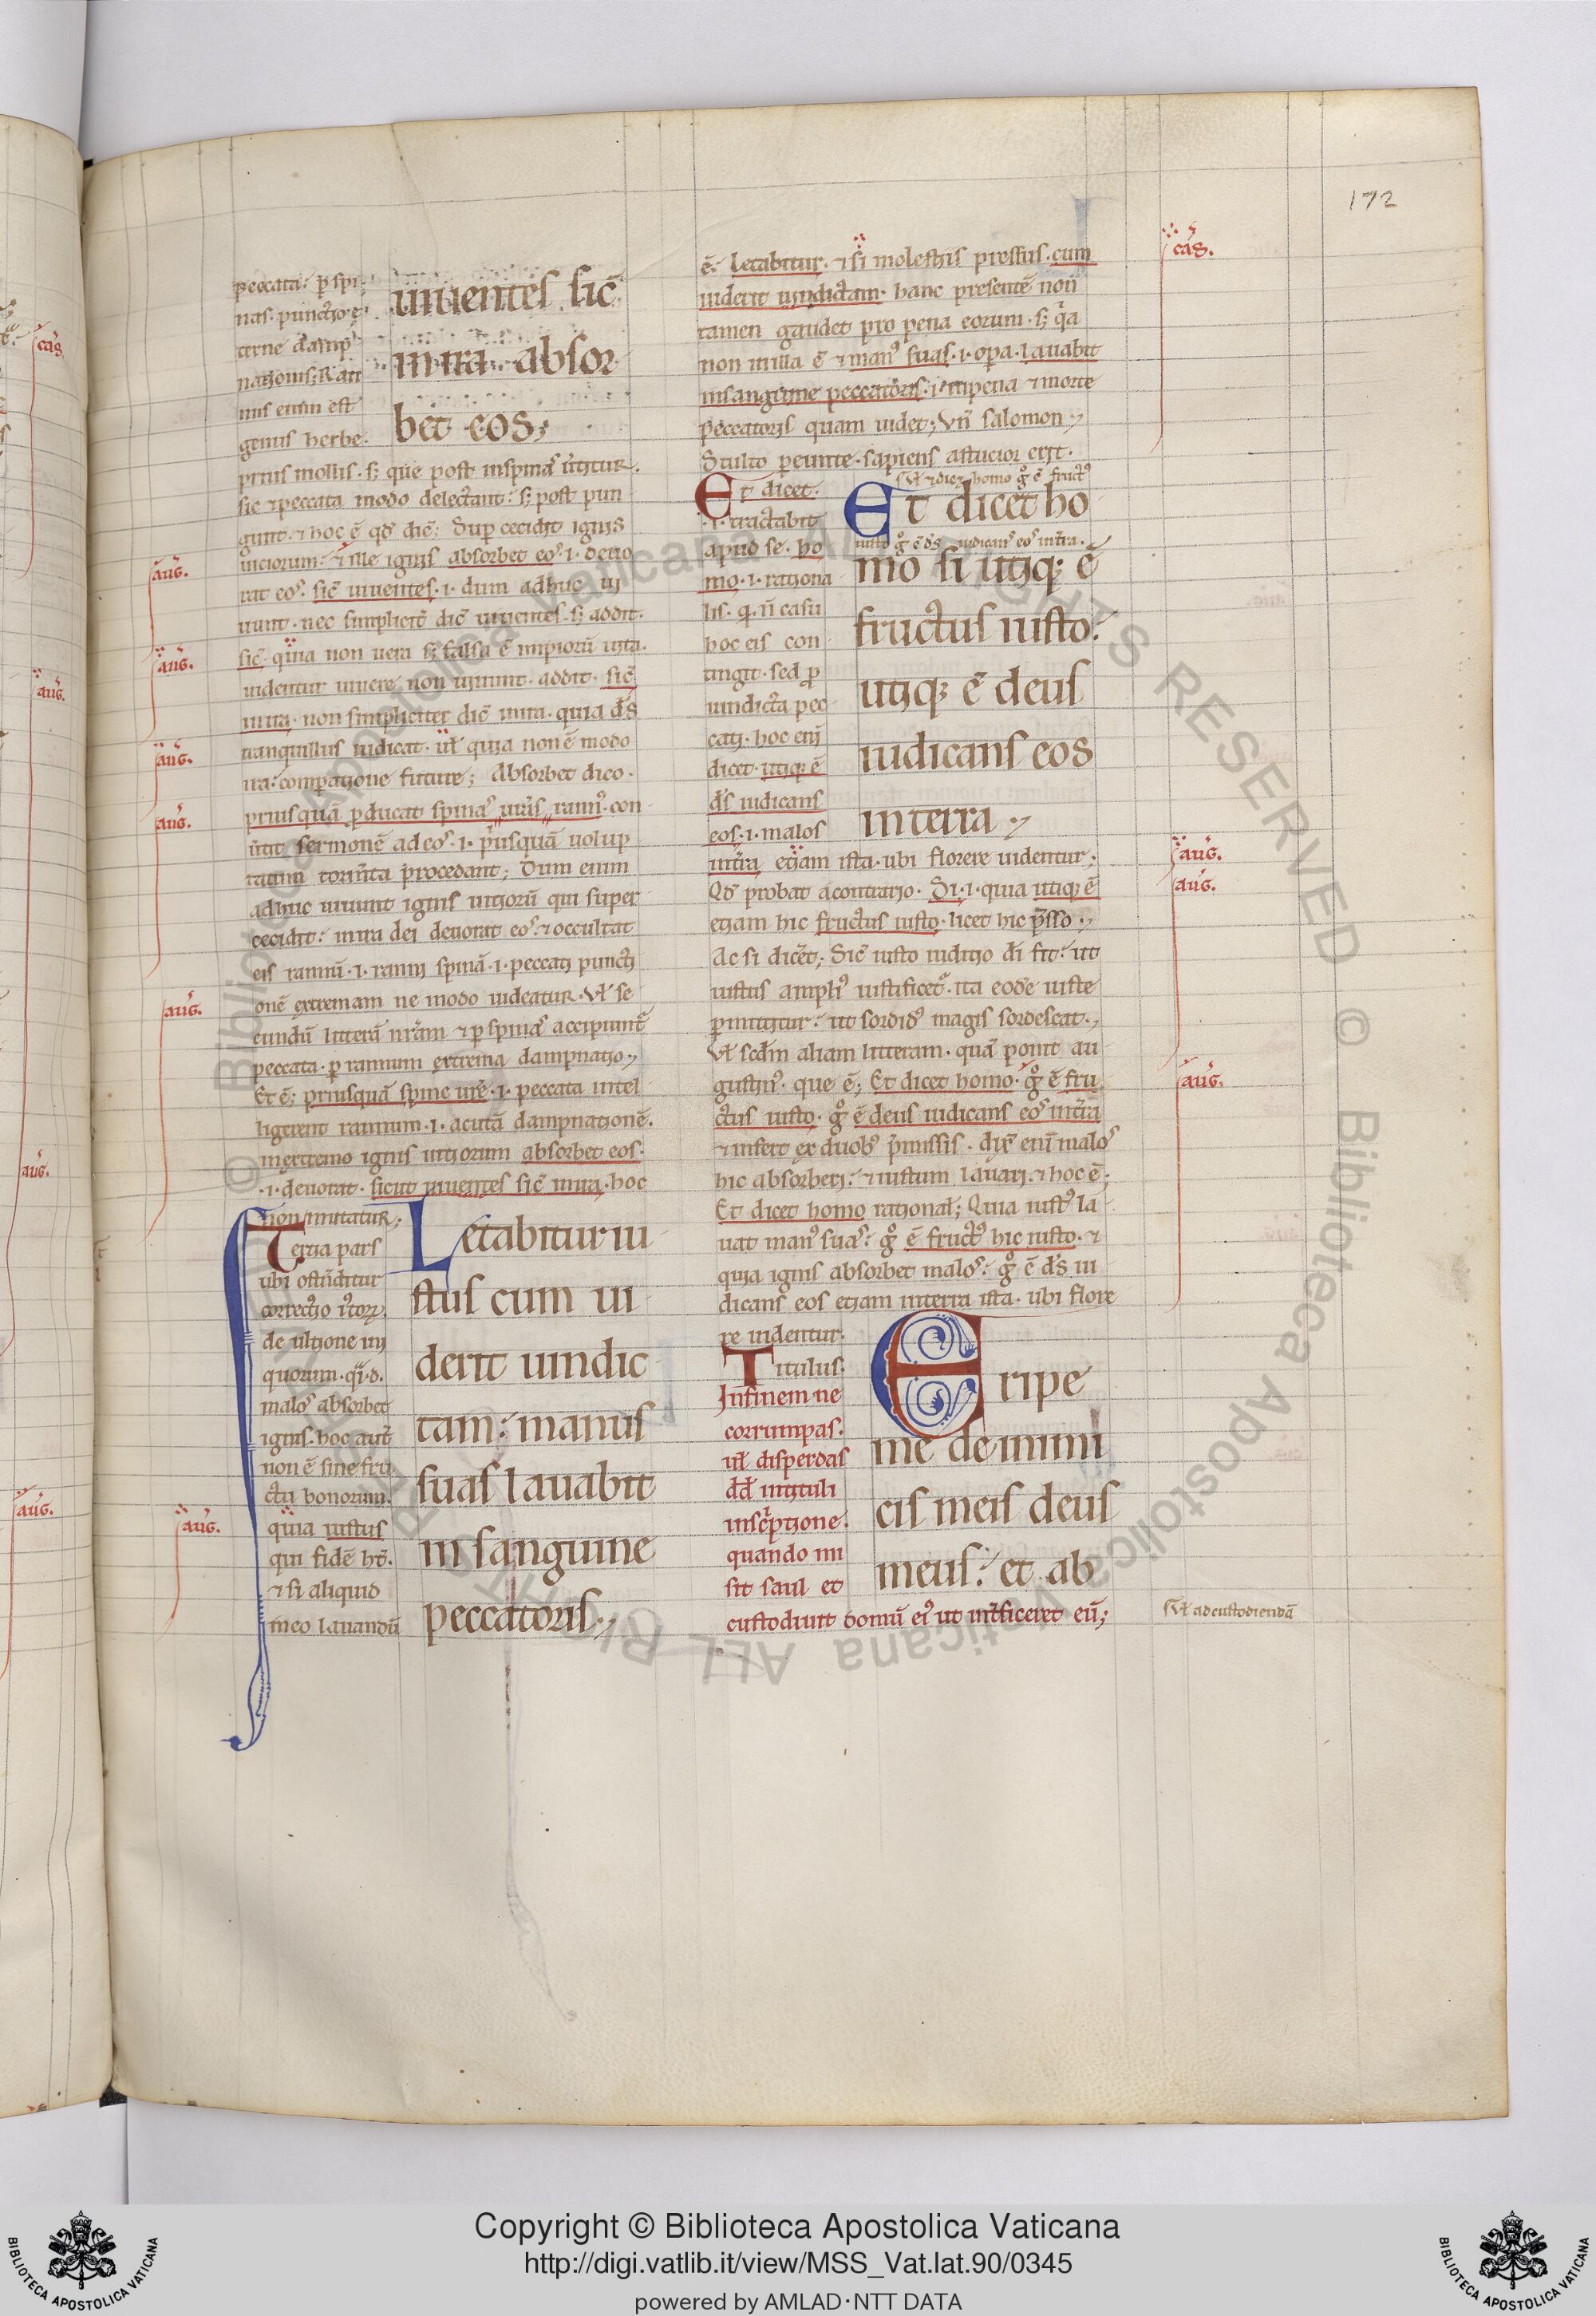 172
peccata: p̱ spi
nas. punctio ę
terne dāmp
nationis; Rān
nus enim est
genus herbe.
uiuentes sic̄
in ira absor
bet eos;
prius mollis. s; que post in spinas ūtitur.
sic ⁊ peccata modo delectant. s; post pun
gunt. ⁊ hoc ē qd̄ dic̄; Sup̱ cecidit ignis
uiciorum: ⁊ ille ignis absorbet eos .i. deuo
rat eos. sic̄ uiuentes .i. dum adhuc ui
uunt. nec simplicit̄ dic̄ uiuentes. s; addit.
sic̄. quia non uera s; falsa ē impiorū uita.
uidentur uiuere non uiuunt. addit. sic̄
in ira. non simpliciter dic̄ in ira. quia d̄s
tranquillus iudicat. ul̄ quia non ē modo
ira: comparatione future; Absorbet dico.
priusquā p̱ducat spinas ur̄is ramn⁹. con
ūtit sermonē ad eos .i. p̄usquā uolup
tatum torm̄ta procedant; Dum enim
adhuc uiuunt ignis uitiorū qui super
cecidit: in ira dei deuorat eos. ⁊ occultat
eis ramnū .i. ramni spinā .i. peccati puncti
onē extremam ne modo uideatur. Ul̄ se
cundū litterā nr̄am ⁊ p̱ spinas accipiunt̄
peccata. p̱ ramnum extrema dampnatio.
Et ē; priusquā spine ur̄e .i. peccata intel
ligerent ramnum .i. acutā dampnationē.
in extremo ignis uitiorum absorbet eos.
.i. deuorat. sicut uiuentes sic̄ in ira. hoc
non mutatur;
Tertia pars
ubi ostn̄ditur
correctio ūtorz
de ultione ini
quorum. q̄i. d.
malos absorbet
ignis. hoc aut̄
non ē sine fru
ctu bonorum.
quia iustus
qui fidē ht̄.
⁊ si aliquid
in eo lauandū
Letabitur iu
stus cum ui
derit uindic
tam: manus
suas lauabit
in sanguine
peccatoris.
ē. letabitur. ⁊ si molestiis pressus. cum
uiderit uindictam. hanc presentē non
tamen gaudet pro pena eorum. s; q̄a
non in illa ē ⁊ man⁹ suas .i. op̱a. lauabit
in sanguine peccatoris .i. in pena ⁊ morte
peccatoris quam uidet; Vn̄ salomon.
Stulto p̱eunte. sapiens astucior erit.
Et dicet.
.i. tractabit
apud se. ho
mo .i. rationa
lis. q. n̄ casu
hoc eis con
tingit. sed p̱
uindicta pec
cati. hoc eni
dicet. utiq; ē
d̄s iudicans
eos .i. malos
ul̄ ⁊ dicet homo ḡ ē fruct⁹
Et dicet ho
iusto ḡ ē d̄s iudicans eos in t̄ra.
mo si utiq; ē
fructus iusto:
utiq; ē deus
iudicans eos
in terra.
in t̄ra etiam ista. ubi florere uidentur;
Qd̄ probat a contrario. Si .i. quia utiq; ē
etiam hic fructus iusto. licet hic p̄sso.
Ac si dicet; Sic̄ iusto iuditio d̄i fit: ut
iustus ampli⁹ iustificet̄. ita eodē iuste
p̱mittitur: ut sordid⁹ magis sordescat.
Ul̄ scd̄m aliam litteram. quā ponit au
gustin⁹. que ē; Et dicet homo. ḡ ē fru
ctus iusto. ḡ ē deus iudicans eos in t̄ra
⁊ infert ex duob⁹ p̄missis. dix̄ eni malos
hic absorberi: ⁊ iustum lauari. ⁊ hoc ē;
Et dicet homo rational̄; Quia iust⁹ la
uat man⁹ suas: ḡ ē fruct⁹ hic iusto. ⁊
quia ignis absorbet malos: ḡ ē d̄s iu
dicans eos etiam in terra ista. ubi flore
re uidentur.
Titulus.
In finem ne
corrumpas.
ul̄ disperdas
d̄d̄ in tituli
insc̄ptione.
quando mi
sit saul et
custodiuit domū ei⁹ ut int̄ficeret eū;
Eripe
me de inimi
cis meis deus
meus: et ab
ul̄ ad custodiendā
cās.
aūg.
aūg.
aūg.
aūg.
aūg.
aūg.
aūg.
aūg.
aūg.
cās.
aūg.
aūg.
aūg.
© Biblioteca Apostolica Vaticana ALL RIGHTS RESERVED
© Biblioteca Apostolica Vaticana ALL RIGHTS RESERVED
Copyright © Biblioteca Apostolica Vaticana
http://digi.vatlib.it/view/MSS_Vat.lat.90/0345
powered by AMLAD·NTT DATA
BIBLIOTECA APOSTOLICA VATICANA
BIBLIOTECA APOSTOLICA VATICANA